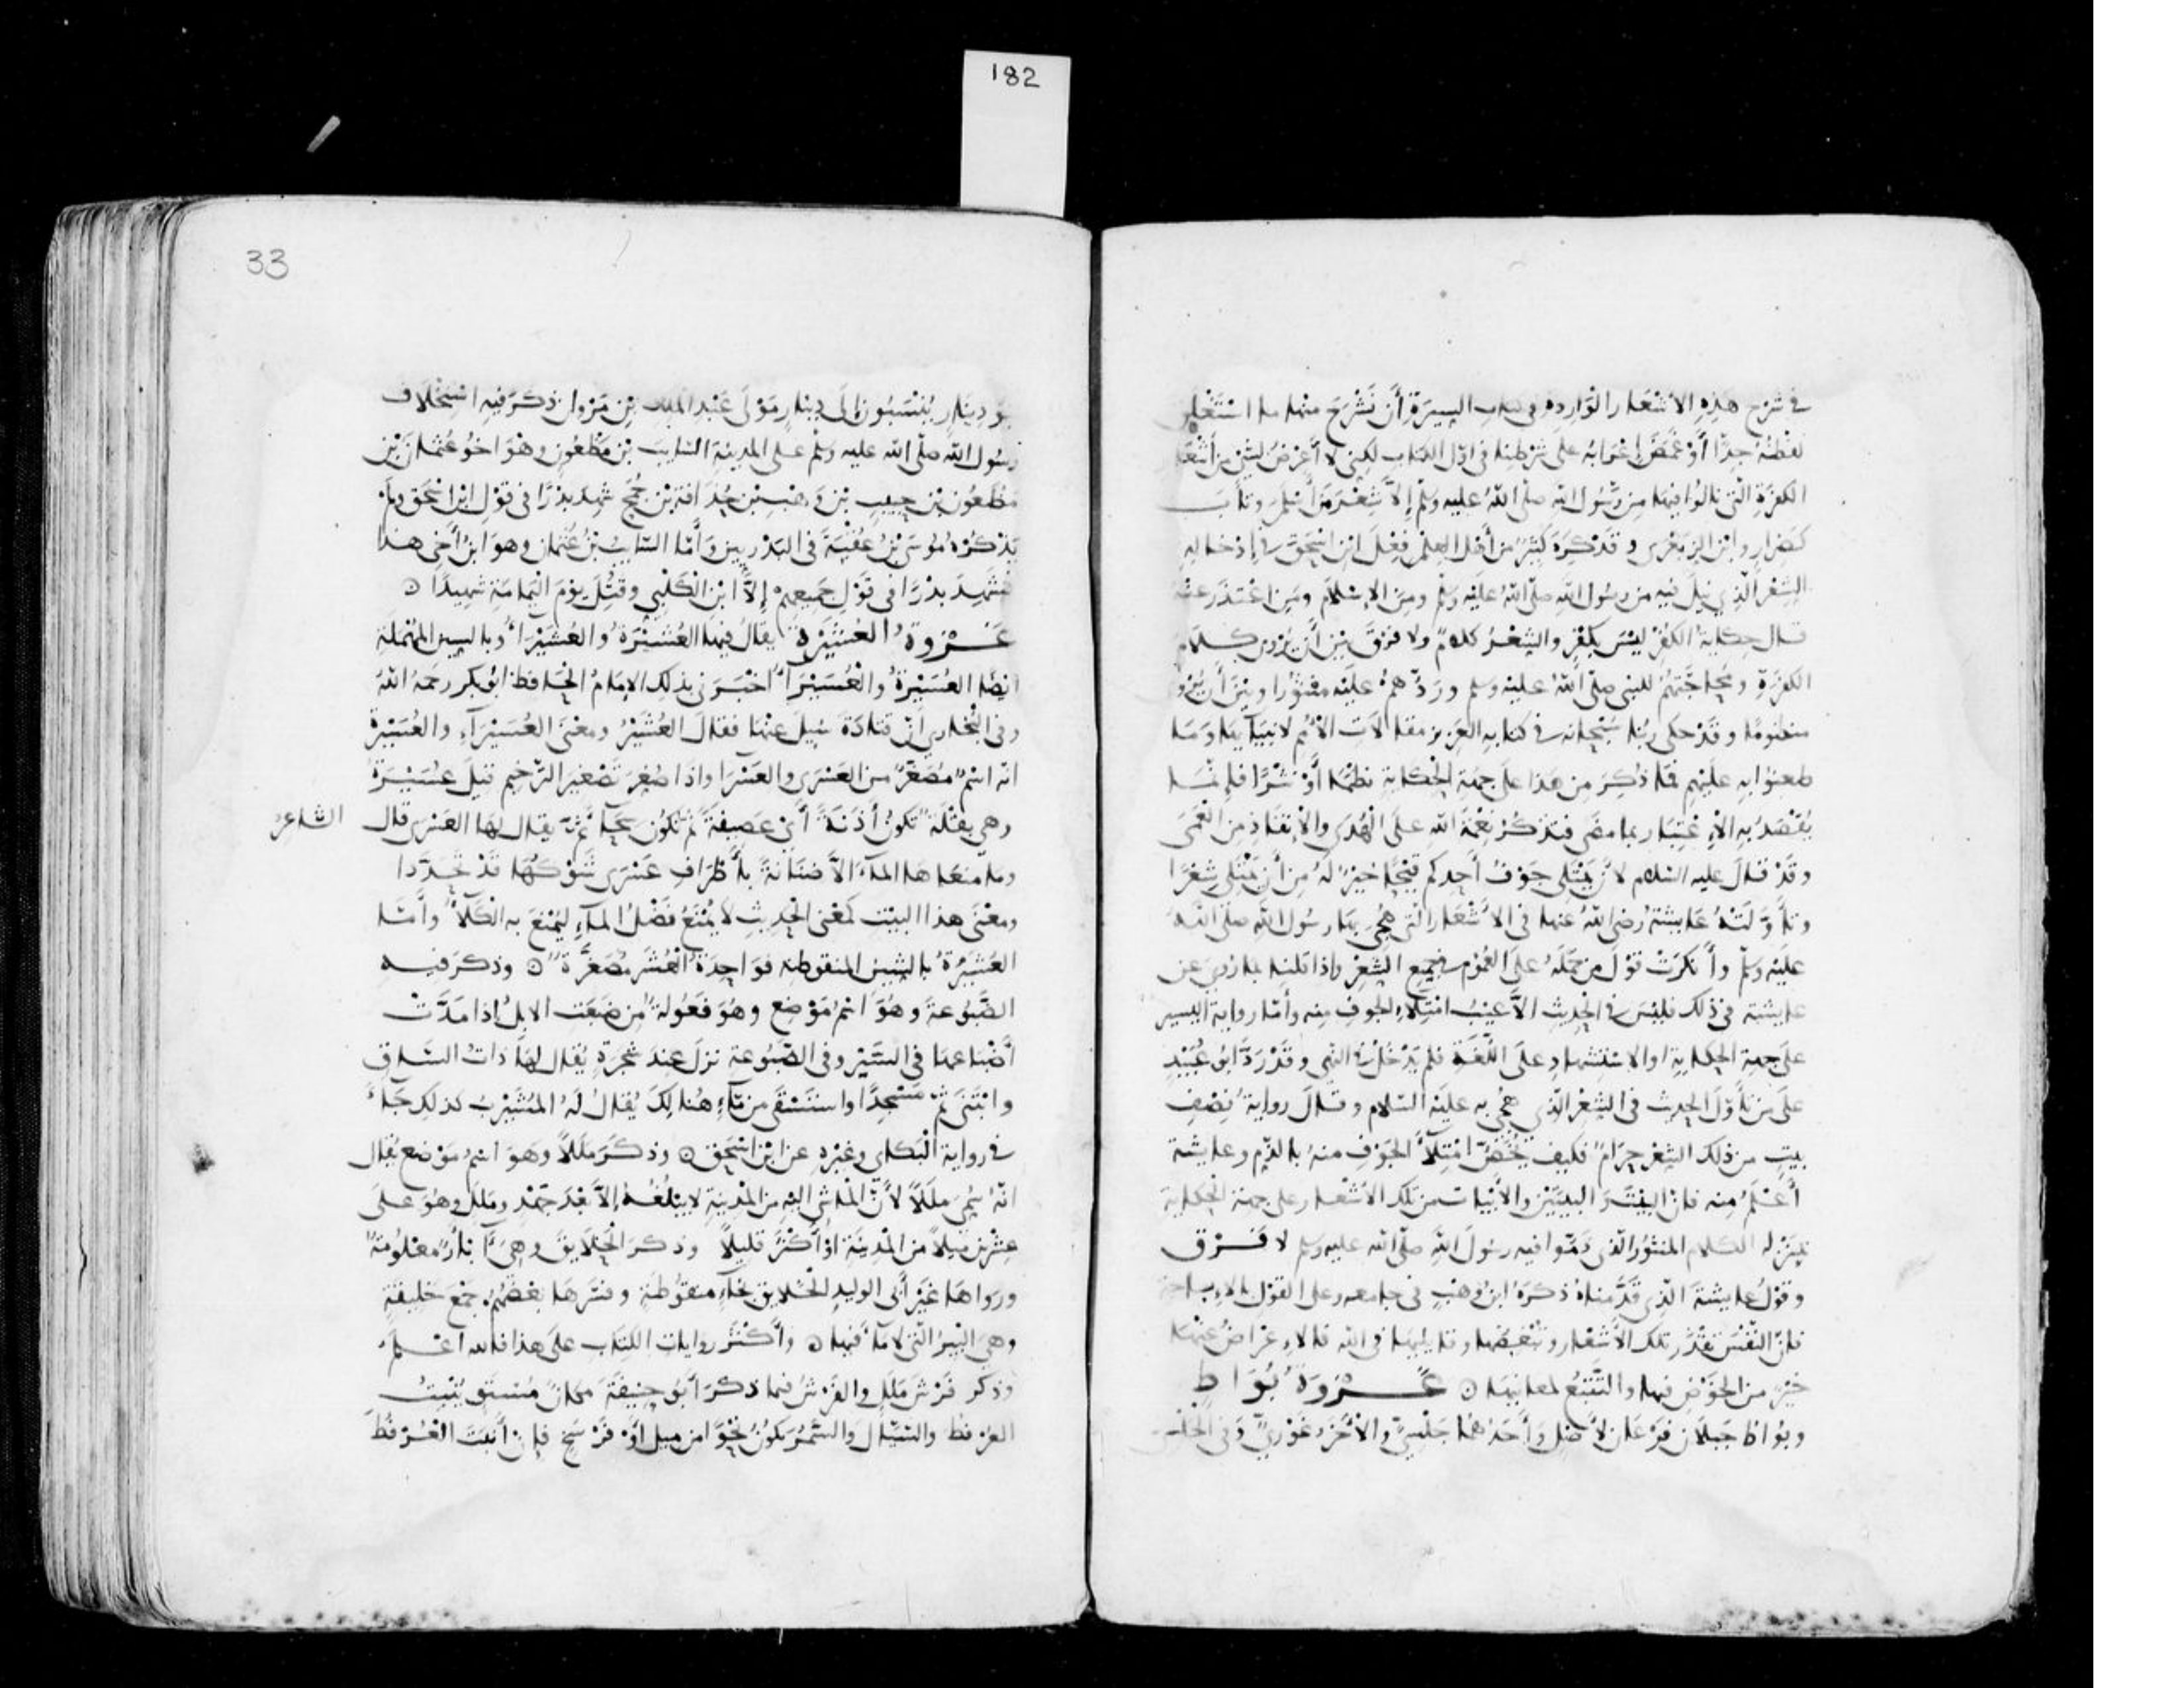 182
في شرح هذه الأشعار الواردة في كتاب السيرة أن نشرح منها ما استغلق
لفظه جدا أو غمض إعرابه على شرطنا في أول الكتاب لكني لا أعرض لشيء من أشعار
الكفرة التي نالوا فيها من رسول الله صلى الله عليه وسلم إلا شعر من أسلم وتاب
كضرار وابن الزبعرى وقد كره كثير من أهل العلم فعل ابن اسحق في إدخاله
الشعر الذي نيل فيه من رسول الله صلى الله عليه وسلم ومن الاسلام ومن اعتذر عنه
قال حكاية الكفر ليس بكفر والشعر كلام ولا فرق بين أن يروى كلام
الكفرة ومحاجتهم للنبي صلى الله عليه وسلم وردهم عليه منثورا وبين أن يروى
منظوما وقد حكى ربنا سبحانه في كتابه العزيز مقالات الأمم لانبيائها وما
طعنوا به عليهم فما ذكر من هذا على جهة الحكاية نظما أو نثرا فإنما
يقصد به الاعتبار بما مضى وتذكر نعمة الله على الهدى والإنقاذ من العمى
وقد قال عليه السلام لأن يمتلي جوف أحدكم قيحا خير له من أن يمتلي شعرا
وتأولته عايشة رضي الله عنها في الأشعار التي هجي بها رسول الله صلى الله
عليه وسلم وأنكرت قول من حمله على العموم في جميع الشعر وإذا قلنا بما روي عن
عايشة في ذلك فليس في الحديث إلا عيب امتلاء الجوف منه وأما رواية اليسير
على جهة الحكاية أو الاستشهاد على اللغة فلم يدخل في النهي وقد رد أبو عبيد
على من تأول الحديث في الشعر الذي هجي به عليه السلام وقال رواية نصف
بيت من ذلك الشعر حرام فكيف يخص امتلاء الجوف منه بالذم وعايشة
أعلم منه فإن البيت والبيتين والأبيات من تلك الأشعار على جهة الحكاية
بمنزلة الكلام المنثور الذي ذموا فيه رسول الله صلى الله عليه وسلم لا فرق
وقول عايشة الذي قدمناه ذكره ابن وهب في جامعه وعلى القول بالإباحة
فإن النفس تقذر تلك الأشعار وتبغضها وقايليها في الله فالإعراض عنها
خير من الخوض فيها والتتبع لمعانيها غزوة بواط
وبواط جبلان فرعان لأصل وأحدهما جلسي والآخر غوري وفي الجلسي
33
بنو دينار ينسبون إلى دينار مولى عبد الملك بن مروان ذكر فيه استخلاف
رسول الله صلى الله عليه وسلم على المدينة السايب بن مظعون وهو اخو عثمان بن
مظعون بن حبيب بن وهب بن حذافة بن جمح شهد بدرا في قول ابن اسحق ولم
يذكره موسى بن عقبة في البدريين وأما السايب بن عثمان وهو ابن أخي هذا
فشهد بدرا في قول جميعهم إلا ابن الكلبي وقتل يوم اليمامة شهيدا
غزوة العشيرة يقال فيها العشيرة والعشيراء وبالسين المهملة
ايضا العسيرة والعسيراء اخبرني بذلك الإمام الحافظ ابو بكر رحمه الله
وفي البخاري أن قتادة سيل عنها فقال العشير ومعنى العسيراء والعسيرة
انه اسم مصغر من العسرى والعسرا واذا صغر تصغير الترخيم قيل عسيرة
وهي بقلة تكون أذنة أي عصيفة ثم تكون سحا ثم يقال لها العسرى قال الشاعر
وما منعاها الماء الا ضنانة بأطراف عسرى شوكها قد تخددا
ومعنى هذا البيت كمعنى الحديث لا يمنع فضل الماء ليمنع به الكلأ وأما
العشيرة بالشين المنقوطة فواحدة العشر مصغرة وذكر فيه
الضبوعة وهو اسم موضع وهو فعولة من ضبعت الابل اذا مدت
أضباعها في السير وفي الضبوعة نزل عند شجرة يقال لها ذات الساق
وابتنى ثم مسجدا واستسقى من ماء هنالك يقال له المشيرب كذلك جاء
في رواية البكاي وغيره عن ابن اسحق وذكر مللا وهو اسم موضع يقال
انه سمي مللا لأن الماشي اليه من المدينة لا يبلغه إلا بعد جهد وملل وهو على
عشرين ميلا من المدينة أو أكثر قليلا وذكر الحلايق وهي آبار معلومة
ورواها غير أبي الوليد الخلايق بخاء منقوطة وفسرها بعضهم جمع خليقة
وهي البير التي لا ماء فيها وأكثر روايات الكتاب على هذا فالله اعلم
وذكر فرش ملل والفرش فيما ذكر أبو حنيفة مكان مستو ينبت
العرفط والسيال والسمر يكون نحوا من ميل أو فرسخ فإن أنبت العرفط